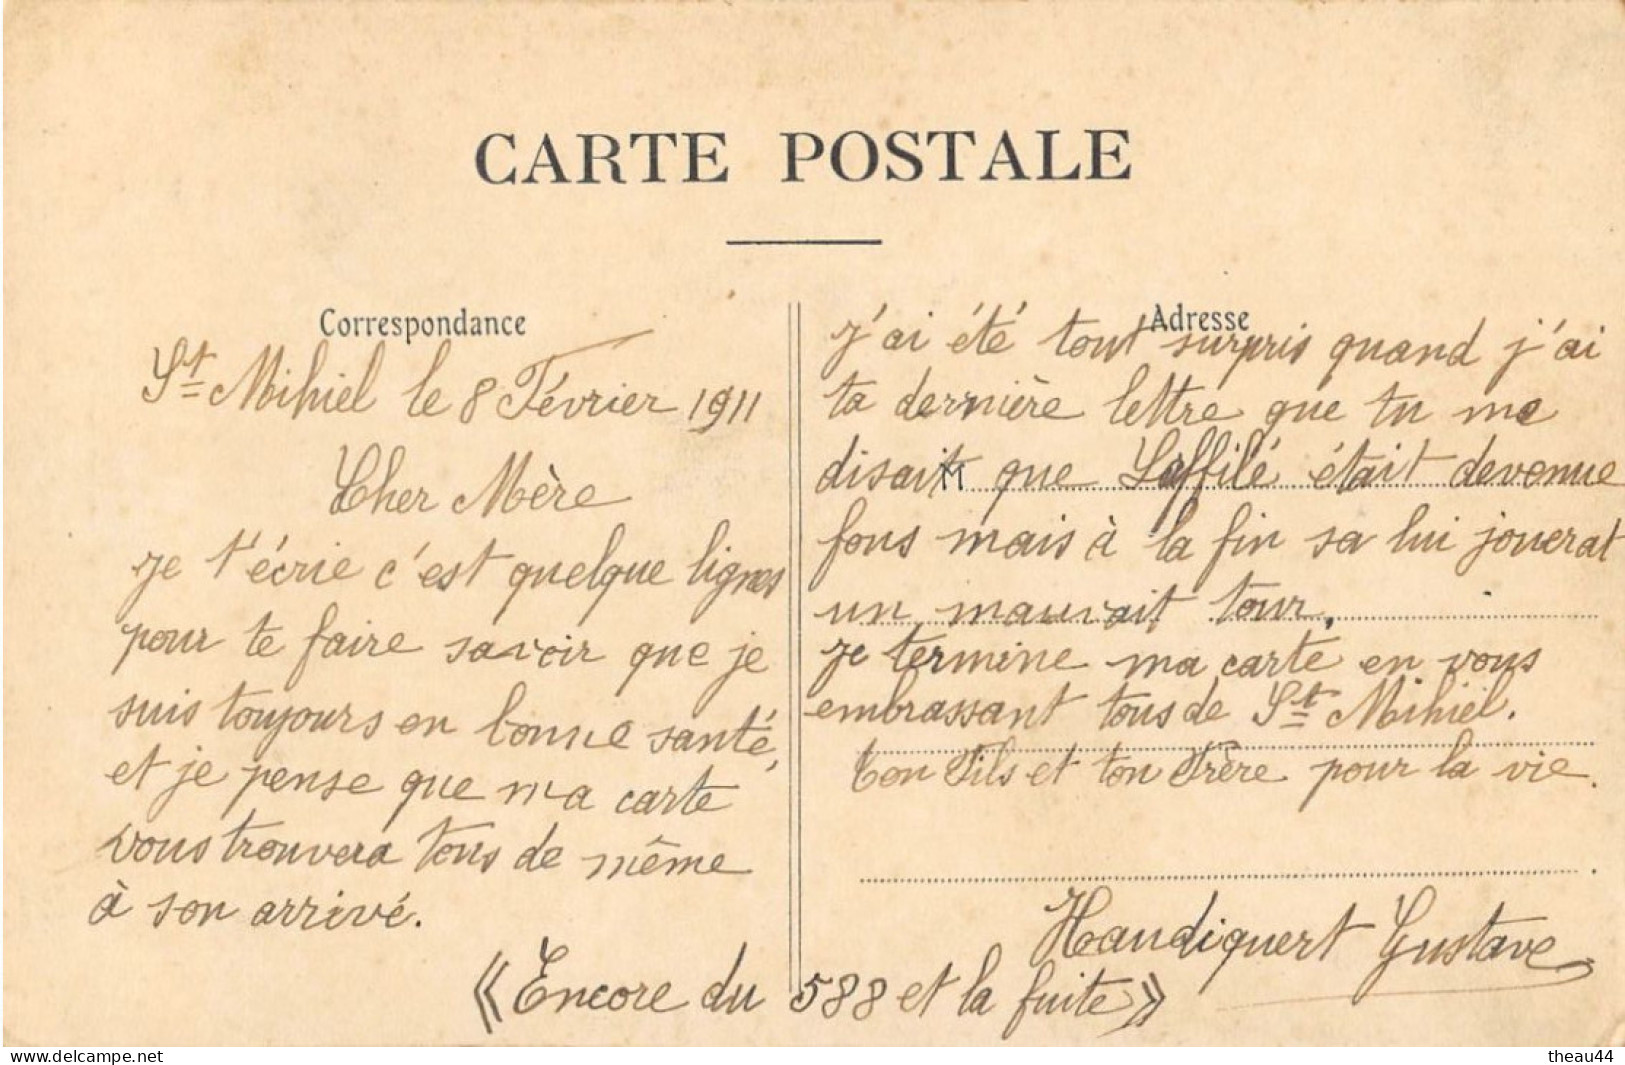 CARTE POSTALE
Correspondance
St Mihiel le 8 Février 1911
Cher Mère
je t'écrie c'est quelque lignes
pour te faire savoir que je
suis toujours en bonne santé,
et je pense que ma carte
vous trouvera tous de même
à son arrivé.
Adresse
j'ai été tout surpris quand j'ai
ta dernière lettre que tu me
disait que Laffilé était devenue
fous mais à la fin sa lui jouerat
un mauvait tour,
je termine ma carte en vous
embrassant tous de St Mihiel.
ton Fils et ton Frère pour la vie.
Handiquert Gustave
« Encore du 588 et la fuite »
www.delcampe.net
theau44